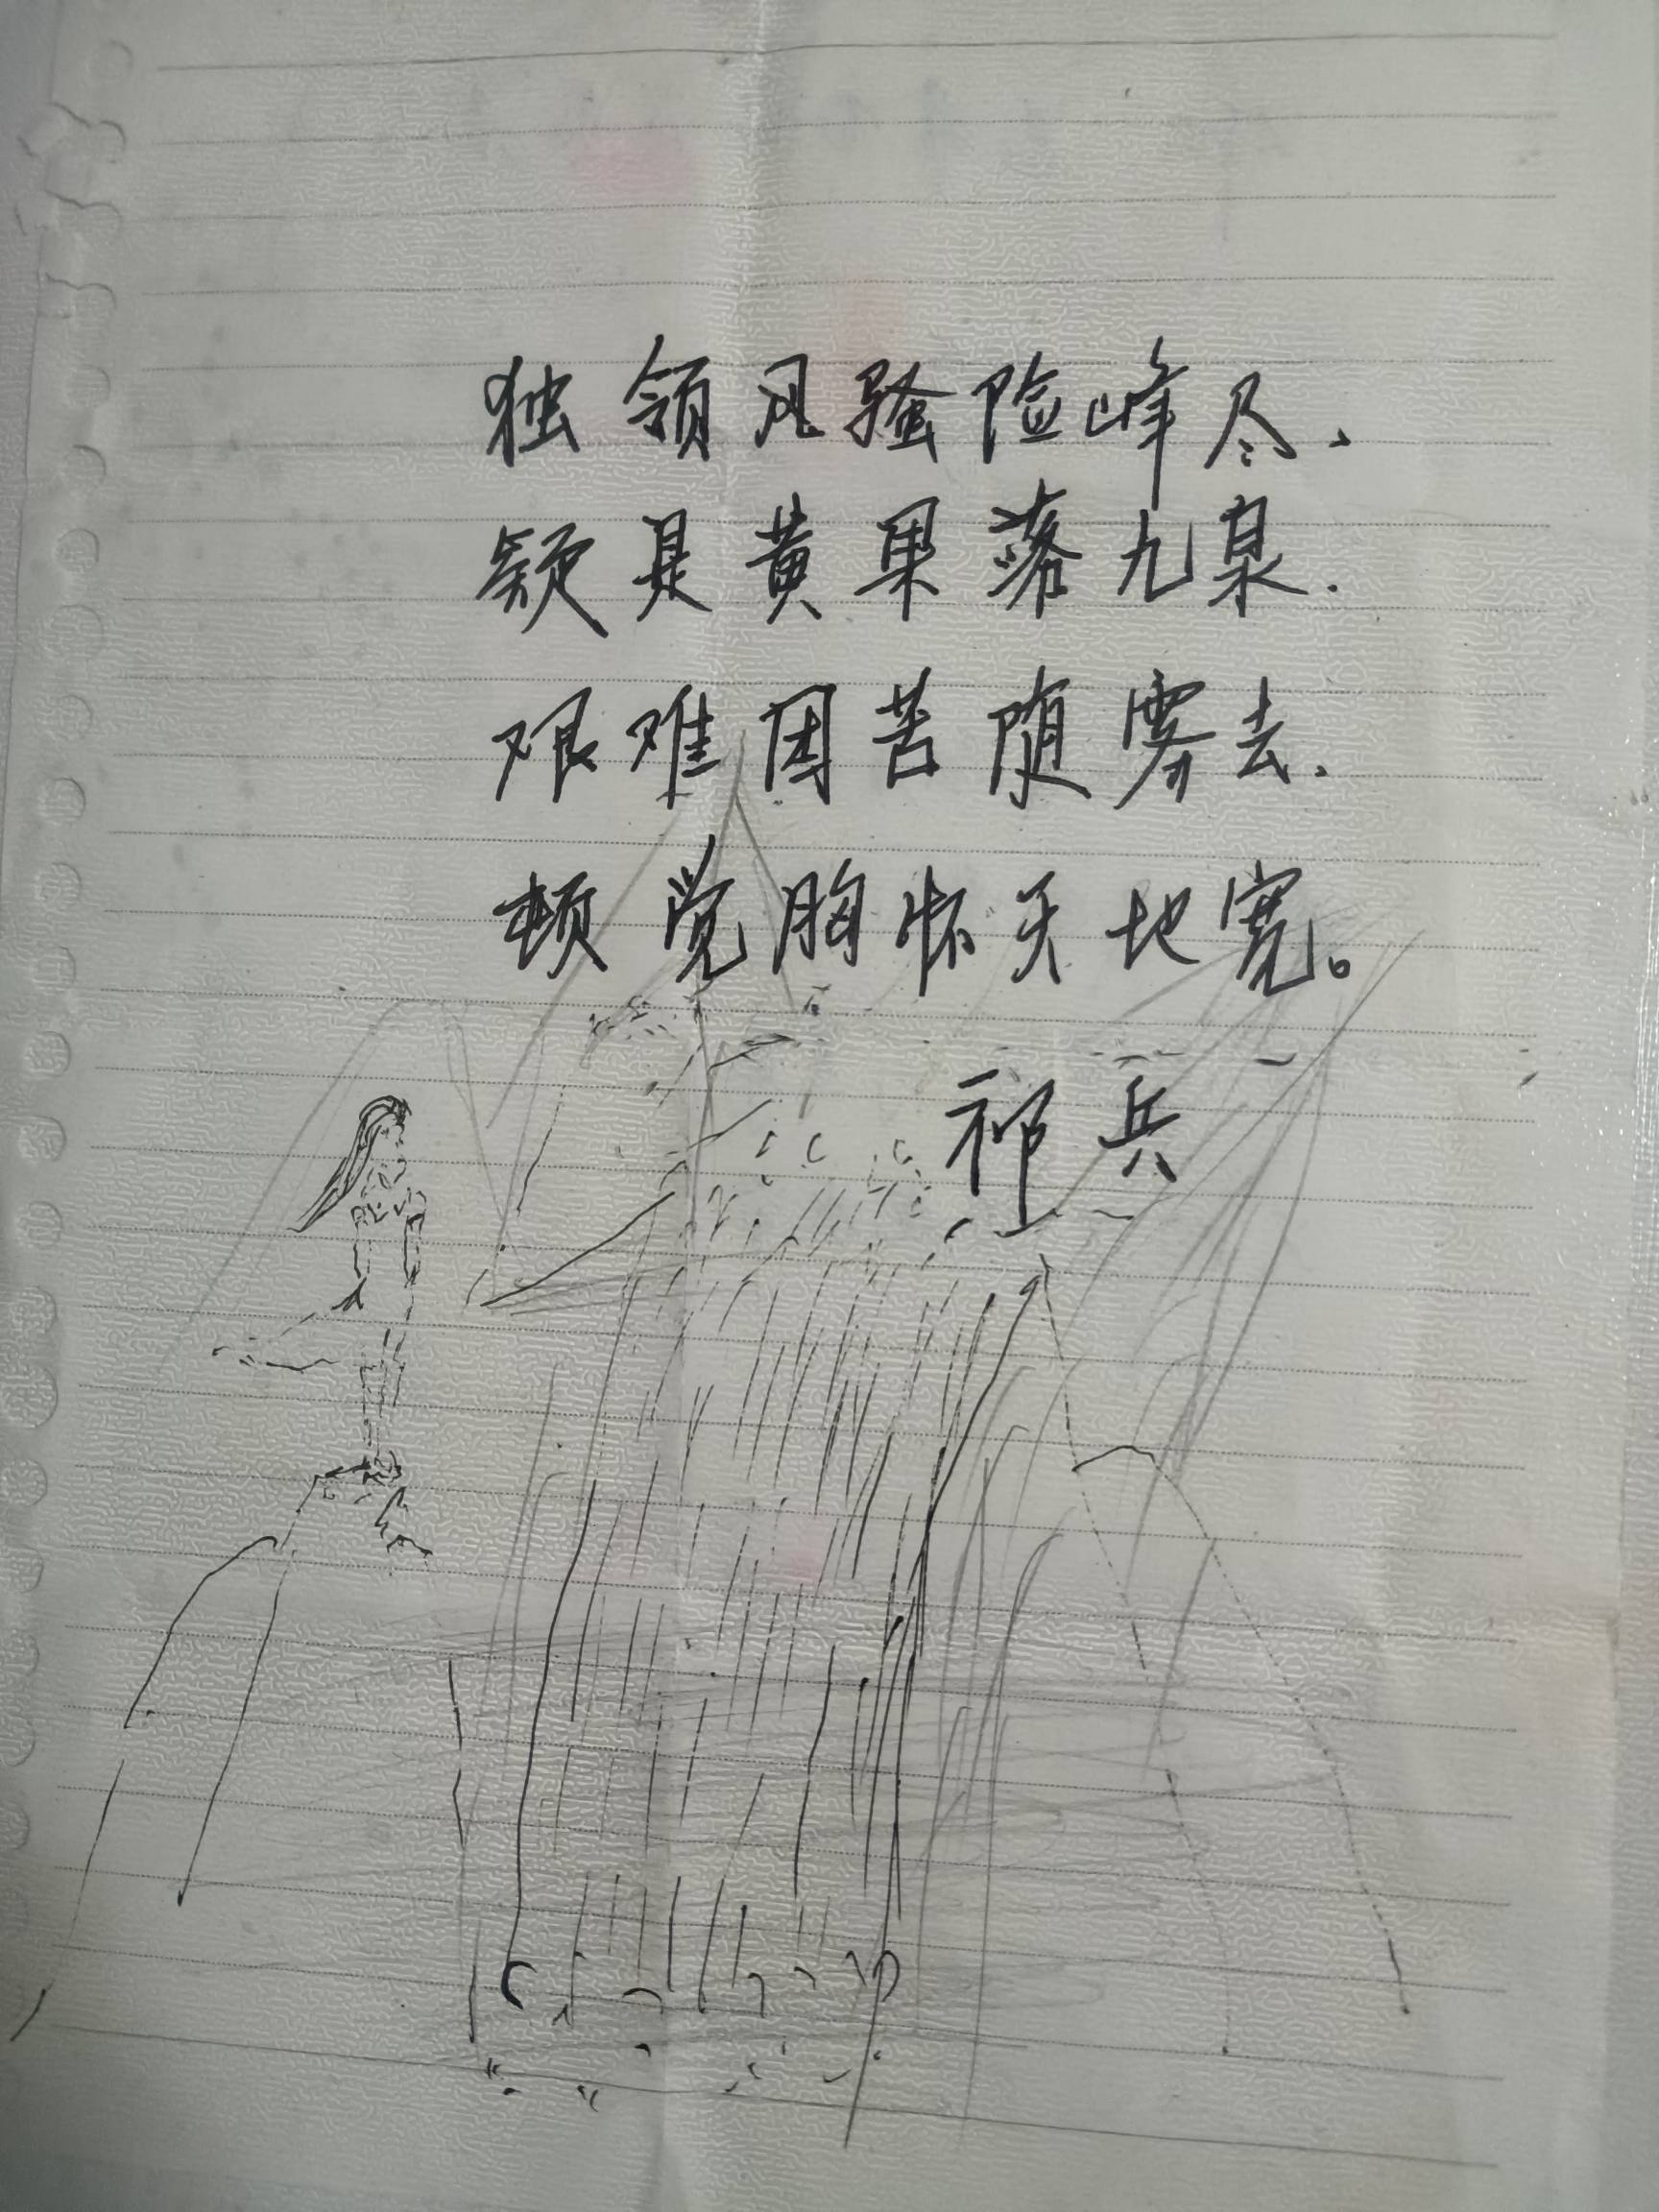 独领风骚险峰尽、
疑是黄果落九泉.
艰难困苦随雾去.
顿觉胸怀天地宽。
祁兵